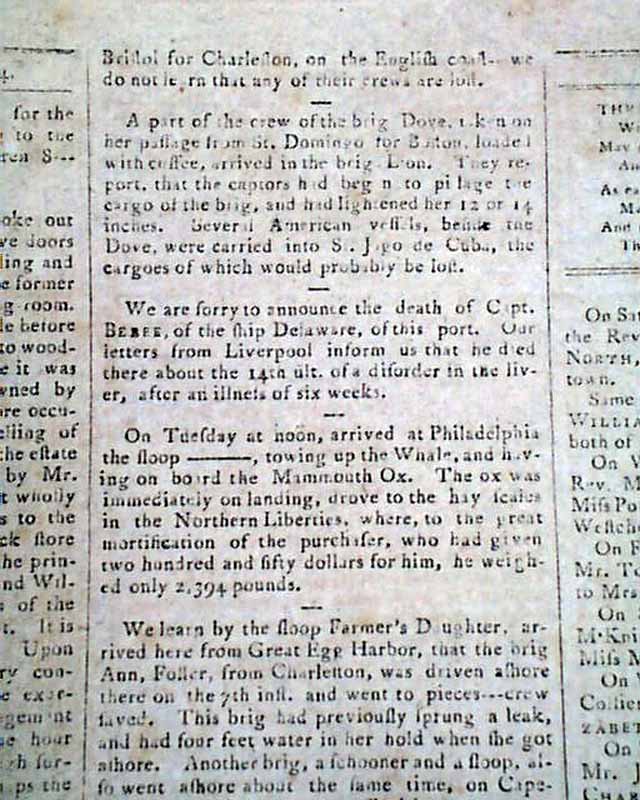 Bristol for Charleston, on the English coast-- we
do not learn that any of their crews are lost.
A part of the crew of the brig Dove, taken on
her passage from St. Domingo for Boston, loaded
with coffee, arrived in the brig Lion. They re-
port, that the captors had begun to pillage the
cargo of the brig, and had lightened her 12 or 14
inches. Several American vessels, beside the
Dove, were carried into St. Jago de Cuba, the
cargoes of which would probably be lost.
We are sorry to announce the death of Capt.
BEBEE, of the ship Delaware, of this port. Our
letters from Liverpool inform us that he died
there about the 14th ult. of a disorder in the liv-
er, after an illness of six weeks.
On Tuesday at noon, arrived at Philadelphia
the sloop ———, towing up the Whale, and hav-
ing on board the Mammouth Ox. The ox was
immediately on landing, drove to the hay scales
in the Northern Liberties, where, to the great
mortification of the purchaser, who had given
two hundred and fifty dollars for him, he weigh-
ed only 2,394 pounds.
We learn by the sloop Farmer's Daughter, ar-
rived here from Great Egg Harbor, that the brig
Ann, Foster, from Charleston, was driven ashore
there on the 7th inst. and went to pieces---crew
saved. This brig had previously sprung a leak,
and had four feet water in her hold when she got
ashore. Another brig, a schooner and a sloop, al-
so went ashore about the same time, on Cape-
4.
for the
to the
S---
oke out
doors
ling and
former
g room.
before
to wood-
it was
wned by
are occu-
elling of
the estate
by Mr.
wholly
s to the
ck store
the prin-
nd Wil-
s of the
t. It is
Upon
ry con-
exer-
gement
hour
gh sur-
ps the
May
An
As
Ma
And
Th
On Sat
the Rev
NORTH,
town.
Same
WILLIA
both of
On W
Rev. M
Miss Po
Westch
On F
Mr. To
to Mrs
On
McKni
Miss M
On W
Collie
ZABET
On
Mr. J
CHAR